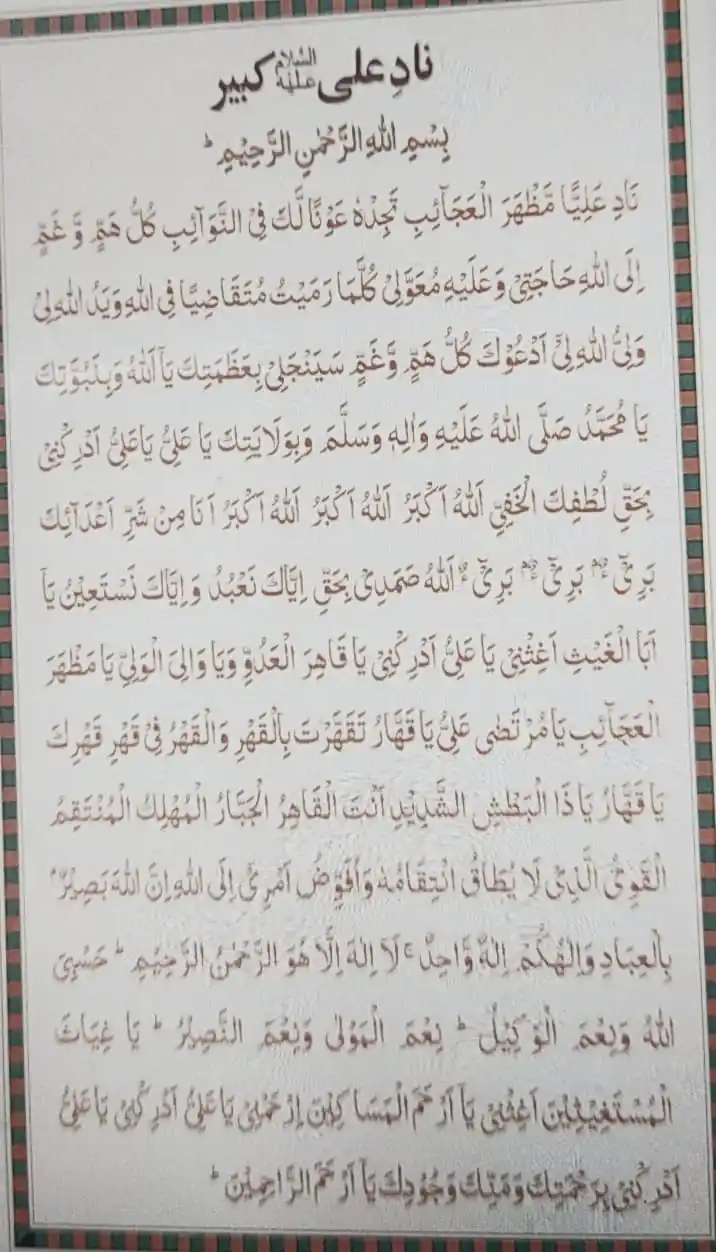 نادِ علی علیہ السلام کبیر
بِسْمِ اللهِ الرَّحْمٰنِ الرَّحِيْمِ ؕ
نَادِ عَلِيًّا مَّظْهَرَ الْعَجَآئِبِ تَجِدْهُ عَوْنًا لَّكَ فِي النَّوَآئِبِ كُلُّ هَمٍّ وَّ غَمٍّ
اِلَى اللهِ حَاجَتِيْ وَعَلَيْهِ مُعَوَّلِيْ كُلَّمَا رَمَيْتُ مُتَقَاضِيًا فِي اللهِ وَيَدُ اللهِ لِيْ
وَلِيُّ اللهِ لِيْ اَدْعُوْكَ كُلُّ هَمٍّ وَّغَمٍّ سَيَنْجَلِيْ بِعَظَمَتِكَ يَآ اَللهُ وَبِنَبُوَّتِكَ
يَا مُحَمَّدُ صَلَّى اللهُ عَلَيْهِ وَاٰلِهٖ وَسَلَّمَ وَبِوَلَايَتِكَ يَا عَلِيُّ يَاعَلِيُّ اَدْرِكْنِيْ
بِحَقِّ لُطْفِكَ الْخَفِيِّ اَللهُ اَكْبَرُ اَللهُ اَكْبَرُ اَللهُ اَكْبَرُ اَنَا مِنْ شَرِّ اَعْدَآئِكَ
بَرِيْٓءٌ بَرِيْٓءٌ بَرِيْٓءٌ اَللهُ صَمَدِيْ بِحَقِّ اِيَّاكَ نَعْبُدُ وَاِيَّاكَ نَسْتَعِيْنُ يَآ
اَبَا الْغَيْثِ اَغِثْنِيْ يَا عَلِيُّ اَدْرِكْنِيْ يَا قَاهِرَ الْعَدُوِّ وَيَا وَالِيَ الْوَلِيِّ يَا مَظْهَرَ
الْعَجَآئِبِ يَا مُرْتَضٰى عَلِيُّ يَا قَهَّارُ تَقَهَّرْتَ بِالْقَهْرِ وَالْقَهْرُ فِيْ قَهْرِ قَهْرِكَ
يَا قَهَّارُ يَا ذَا الْبَطْشِ الشَّدِيْدِ اَنْتَ الْقَاهِرُ الْجَبَّارُ الْمُهْلِكُ الْمُنْتَقِمُ
الْقَوِيُّ الَّذِيْ لَا يُطَاقُ انْتِقَامُهٗ وَاُفَوِّضُ اَمْرِيْٓ اِلَى اللهِ اِنَّ اللهَ بَصِيْرٌۢ
بِالْعِبَادِ وَاِلٰهُكُمْ اِلٰهٌ وَّاحِدٌ ۚ لَآ اِلٰهَ اِلَّا هُوَ الرَّحْمٰنُ الرَّحِيْمُ ؕ حَسْبِيَ
اللهُ وَنِعْمَ الْوَكِيْلُ ؕ نِعْمَ الْمَوْلٰى وَنِعْمَ النَّصِيْرُ ؕ يَا غِيَاثَ
الْمُسْتَغِيْثِيْنَ اَغِثْنِيْ يَآ اَرْحَمَ الْمَسَاكِيْنَ اِرْحَمْنِيْ يَا عَلِيُّ اَدْرِكْنِيْ يَا عَلِيُّ
اَدْرِكْنِيْ بِرَحْمَتِكَ وَمَنِّكَ وَجُوْدِكَ يَآ اَرْحَمَ الرَّاحِمِيْنَ ؕ